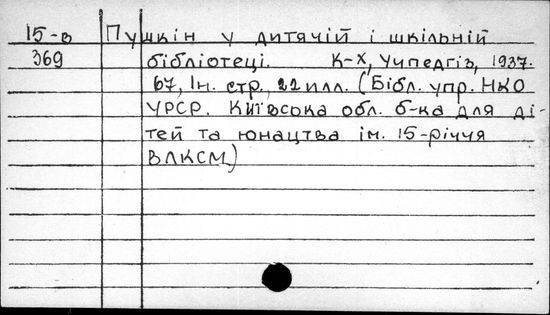 15-в Пушкін у дитячій і шкільній
369 бібліотеці. К-Х, Учпедгіз, 1937.
67, Ін. стр., 22 илл. (Бібл. упр. НКО
УРСР. Київська обл. б-ка для ді-
тей та юнацтва ім. 15-річчя
ВЛКСМ)